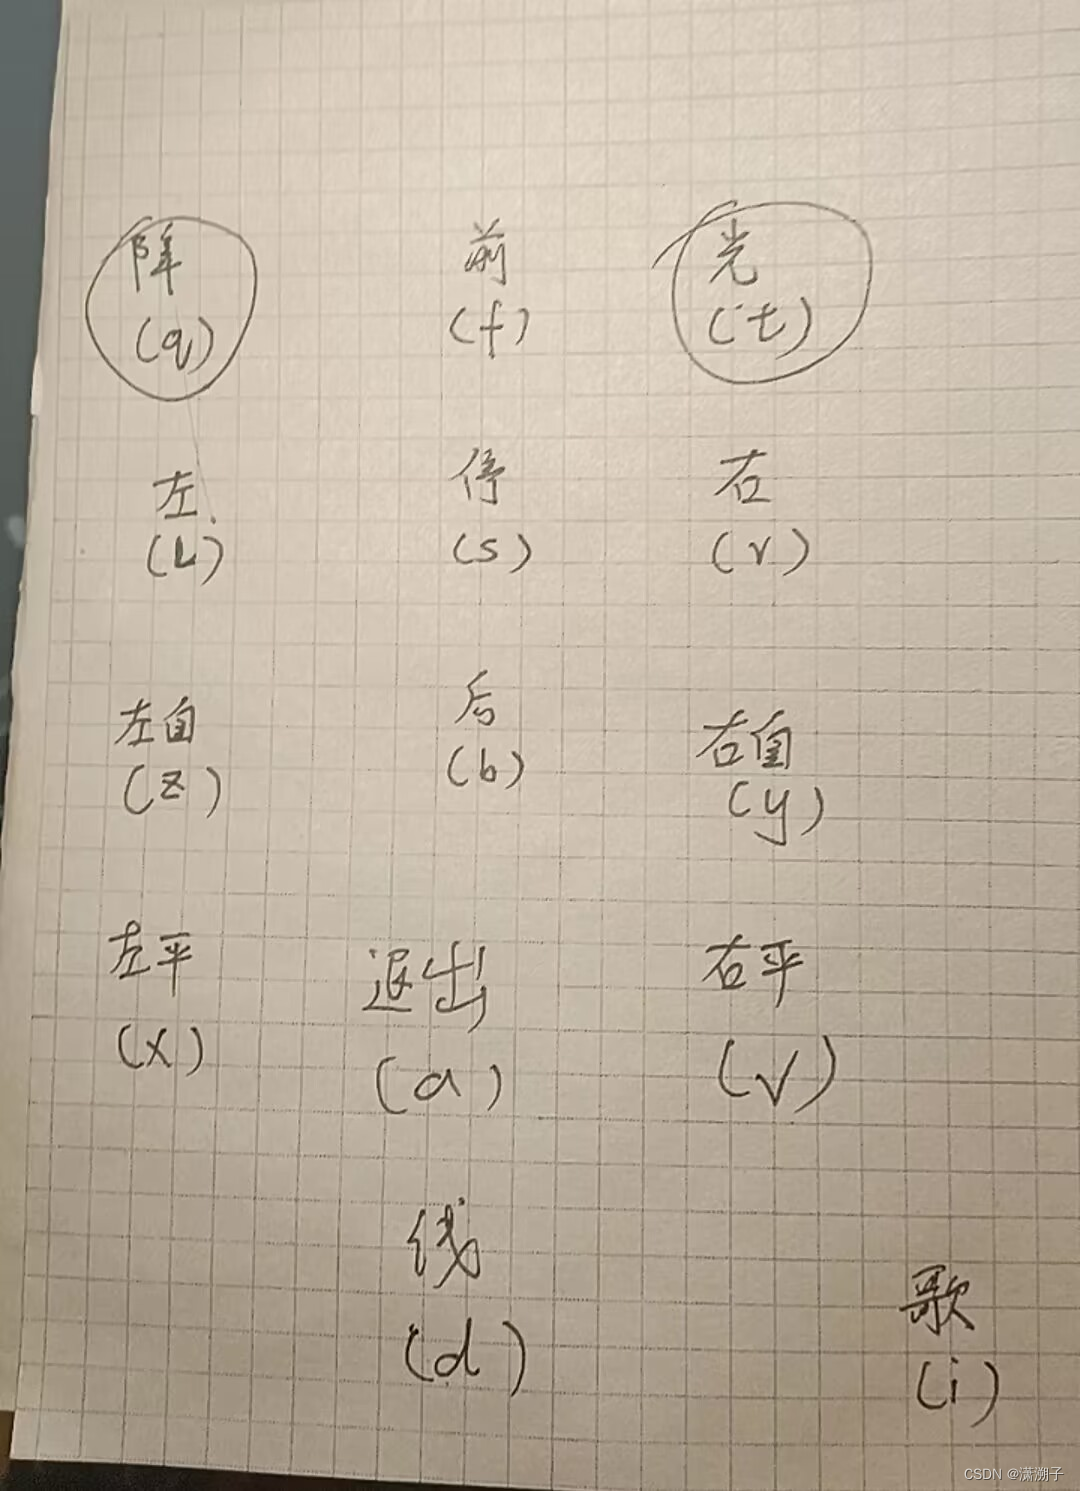 降 前 光
(q) (f) (t)
左 停 右
(L) (s) (r)
左自 后 右自
(z) (b) (y)
左平 退出 右平
(x) (a) (v)
线 歌
(d) (i)
CSDN @潇溯子